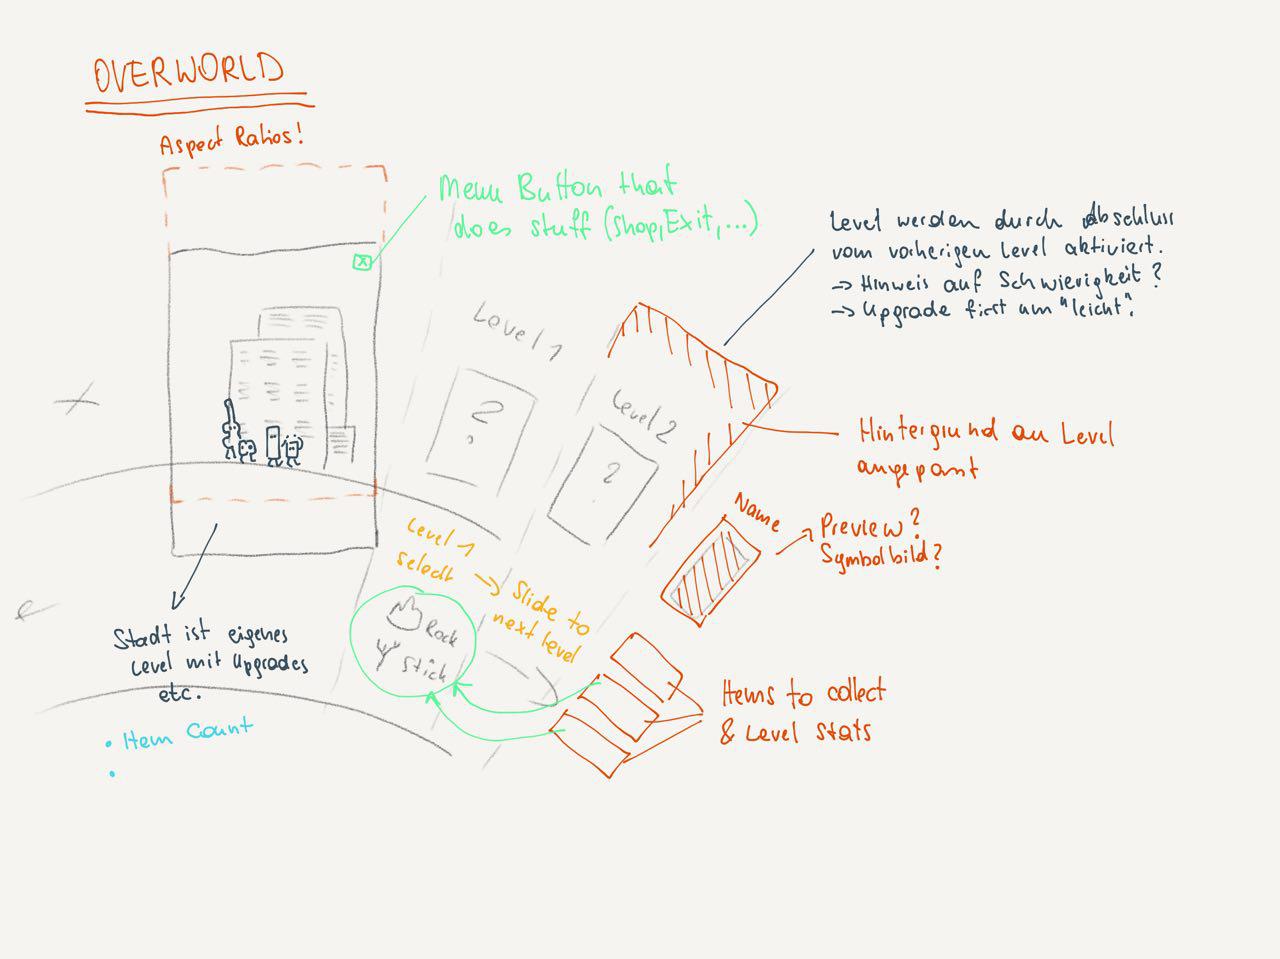 OVERWORLD
Aspect Ratios!
Menu Button that
does stuff (Shop, Exit, ...)
x
Level werden durch Abschluss
vom vorherigen Level aktiviert.
-> Hinweis auf Schwierigkeit?
-> Upgrade first um "leicht".
Level 1
?
Level 2
?
Hintergrund an Level
angepasst
Name
Preview?
Symbolbild?
Level 1
select
-> Slide to
next level
Rock
Stick
Stadt ist eigenes
Level mit Upgrades
etc.
• Item Count
•
Items to collect
& Level Stats